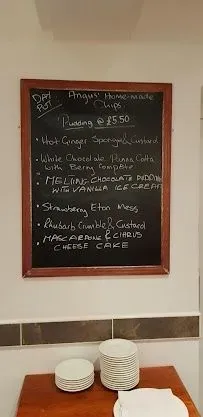 DAY
POT
Angus' Home-made
Chips
Pudding @ £5.50
• Hot Ginger Sponge & Custard
• White Chocolate Panna Cotta
with Berry Compote
• MELTING CHOCOLATE PUDDING
WITH VANILLA ICE CREAM
• Strawberry Eton Mess
• Rhubarb Crumble & Custard
• MASCARPONE & CITRUS
CHEESE CAKE